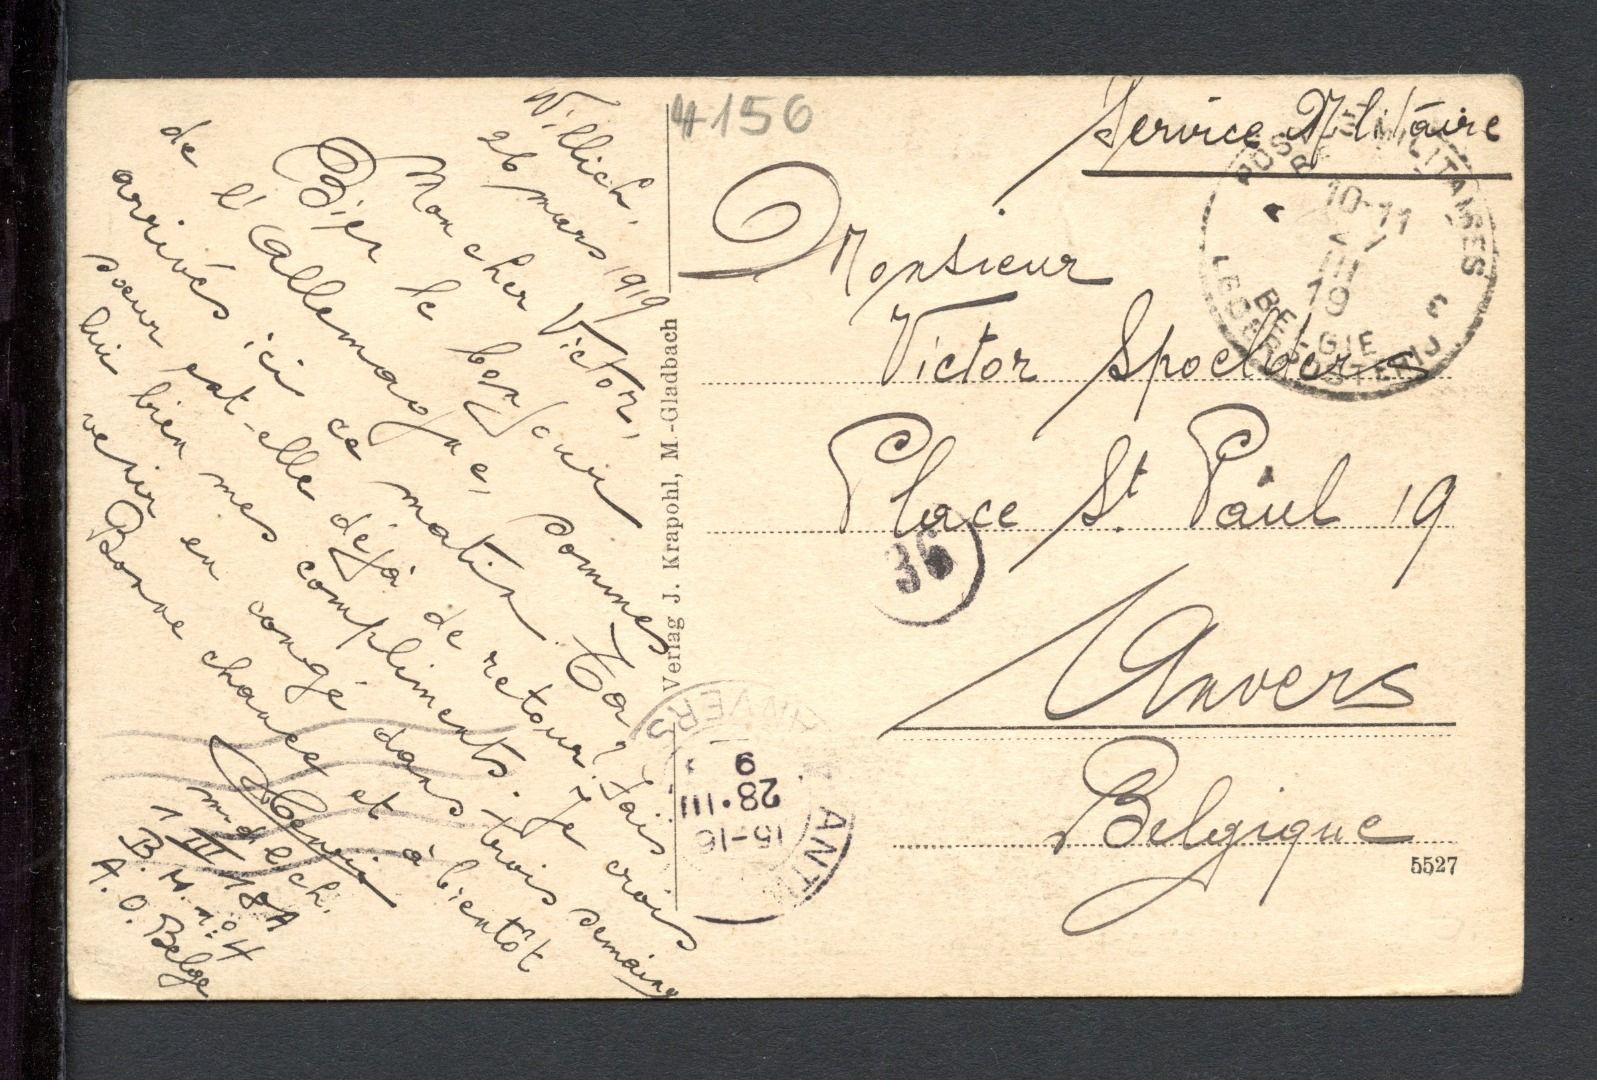 Willich,
26 mars 1919
Mon cher Victor,
Bien le bonjour
de l'Allemagne, sommes
arrivés ici ce matin. Ta
soeur est-elle déjà de retour? Fais
lui bien mes compliments. Je crois
venir en congé dans trois semaines
Bonne chance et à bientôt
Henri
m.d.l. ch.
1 III/18 A
B. M. n° 4
A. O. Belge
Verlag J. Krapohl, M.-Gladbach
4156
Service Militaire
Monsieur
Victor Spoelders
Place St. Paul 19
Anvers
Belgique
5527
POSTES MILITAIRES
10-11
III
19
BELGIE
LEGERPOSTERIJ
36
ANVERS
15-16
28·III
9
ANTW